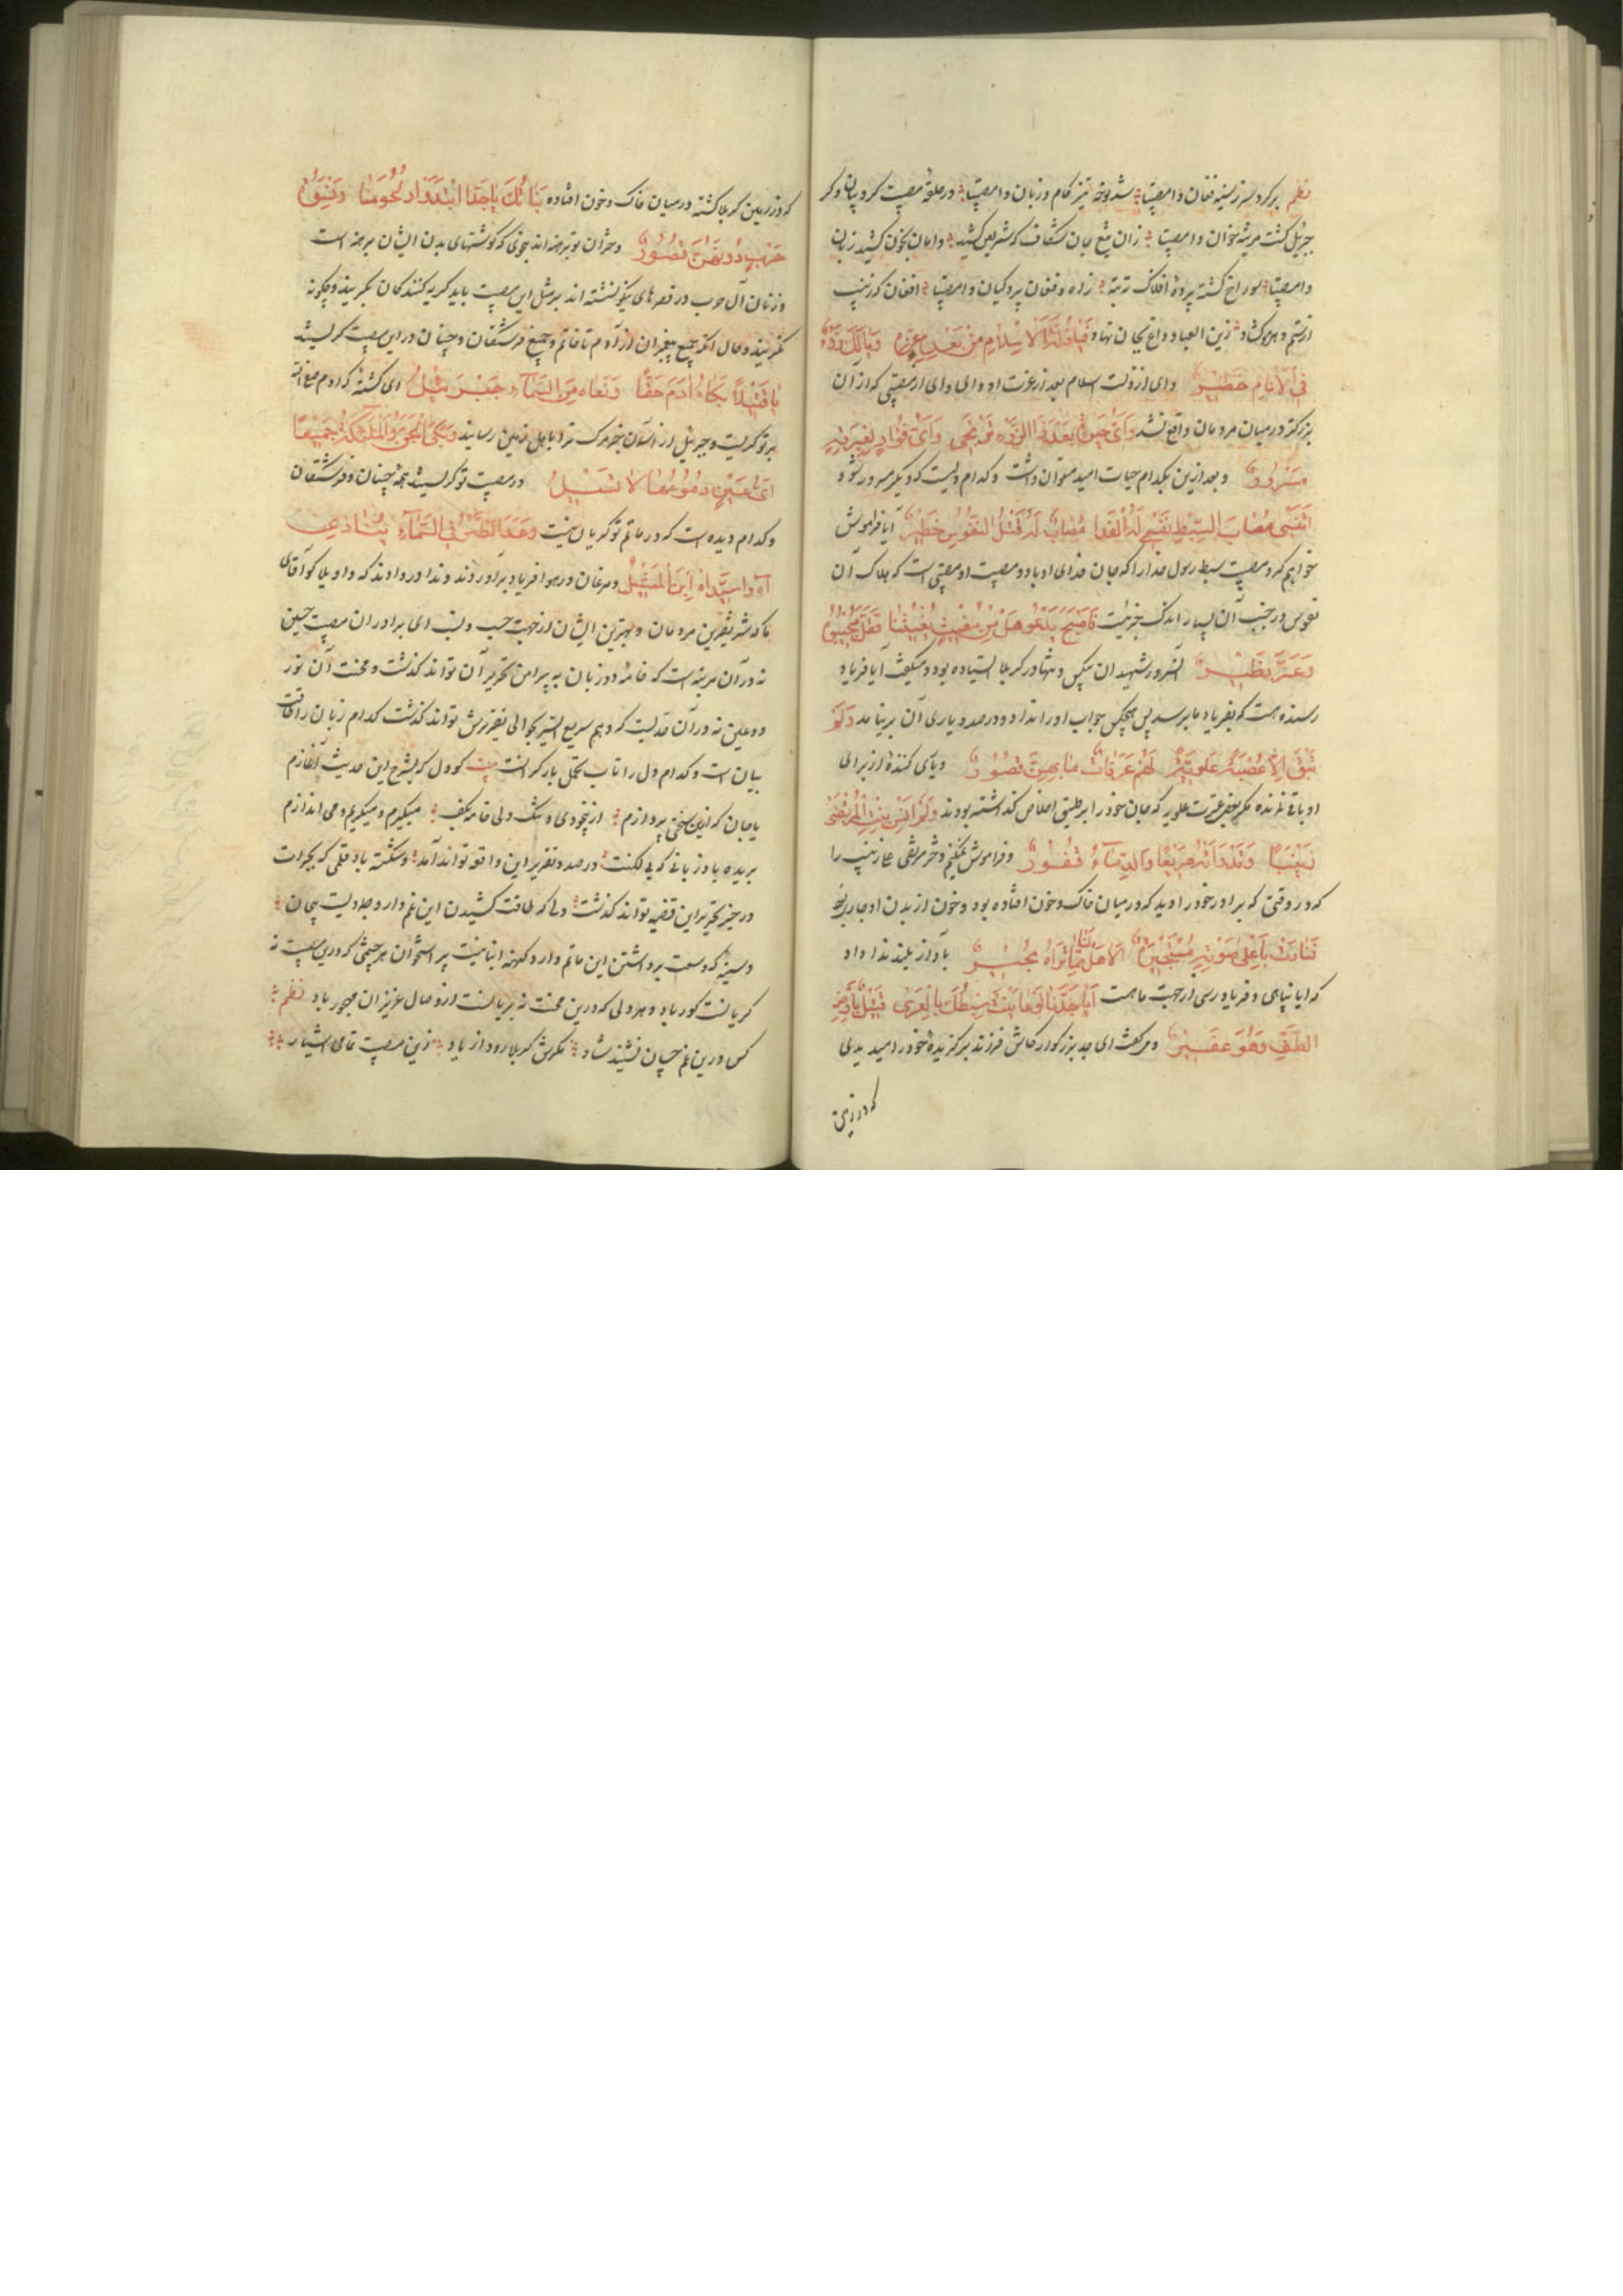 نظم پر کرد سر ز سینه فغان وامصیبتا شد سوخته تیز کام و زبان وامصیبتا در حلقهٔ مصیبت کروبیان و کر
جبرئیل گشت مرثیه خوان وامصیبتا زان تیغ جان شکاف که شمر لعین کشید دامان بخون کشید زمان
وامصیبتا سوراخ گشته پردهٔ افلاک نه تبه زاه و فغان پردگیان وامصیبتا افغان که زینب
از ستم دهر مو گشاد زین العباد داغ بجان نهاد فیا ذلة الاسلام من بعد عزه ویالک رزء
فی الانام خطیر وای از ذلت اسلام بعد از عزت او و ای وای از مصیبتی که از آن
بزرگتر در میان مردمان واقع نشد وای حیوة بعد ذا الرزء ترتجی وای فؤاد لغیر فیه
مسرور و بعد ازین بکدام حیات امید میتوان داشت و کدام دلیست که دیگر مسرور شود
اتنسی مصاب السبط نفسی له الفدا مصاب له قتل النفوس خطیر آیا فراموش
خواهم کرد مصیبت سبط رسول خدا را که جان فدای او باد و مصیبت او مصیبتی است که هلاک آن
نفوس در جنب آن بسیار اندک چیزیست فاصبح یدعو هل من مغیث یغیثنا فقل مجیبوه
وعز نظیر آن سرور شهیدان بیکس و تنها در کربلا ایستاده بود و میگفت آیا فریاد
رسنده هست که بفریاد ما برسد پس هیچکس جواب او را نداد و در صدد یاری آن بر نیامد ولم
تبق الا عصبة علویة لهم عزمات ما بهن قصور و یاری کننده از برای
او باقی نمانده مگر بعض عترت علویه که جان خود را بر طبق اخلاص گذاشته بودند ولم انس بنت المرتضی
زینبا وقد راته صریعا والدماء تفور و فراموش نمیکنم دختر مرتضی علی زینب را
که در وقتی که برادر خود را دید که در میان خاک و خون افتاده بود و خون از بدن او جاری بود
فنادت باعلی صوتها مستجیرة الا هل لنا مما تراه مجیر بآواز بلند ندا داد
که ایا پناهی و فریادرسی از جهت ما هست ایا جدنا لو عاینت سبطک بالعری قتیل بارض
الطف وهو عفیر و میگفت ای جد بزرگوار کاش فرزند برگزیدهٔ خود را میدیدی
که در زمین
که در زمین کربلا کشته در میان خاک و خون افتاده بناتک یا جدا ابتدوا د لحومنا ونسوة
حرب دونهن قصور دختران تو برهنه اند بنحوی که گوشتهای بدن ایشان برهنه است
و زنان آل حرب در قصرهای نیکو نشسته اند بر مثل این مصیبت باید گریه کنندگان بگریند و چگونه
نگریند و حال انکه جمیع پیغمبران از آدم تا خاتم و جمیع فرشتگان و جنیان در این مصیبت گریستند
یا قتیلا بکاه ادم حقا ونعاه من السماء جبرئیل ای کشته که ادم صفی الله
بر تو گریست و جبرئیل از آسمان خبر مرگ ترا باهل زمین رسانید وبکی الجن والملئکة جمیعا
ای عین دموعها لا تسیل در مصیبت تو گریستند همه جنیان و فرشتگان
و کدام دیده است که در ماتم تو گریان نیست وغدا الطیر فی السماء ینادی
آه واسیداه این المثیل و مرغان در هوا فریاد برآوردند و ندا دردادند که واویلا کو آقای
ما که شریفترین مردمان و بهترین ایشان از جهت حسب و نسب ای برادران مصیبت حسین
نه در آن مرتبه است که خامهٔ دو زبان به پیرامن تحریر آن تواند گذشت و محنت آن نور
دو عین نه در آن حدیست که وهم سریع السیر بحوالی تقریرش تواند گذشت کدام زبان را طاقت
بیان است و کدام دل را تاب تحمل بار گرانست بیت کو دل که بشرح این حدیث آغازم
یا جان که ازین سخن بپردازم از بیخودی و سنگدلی خامه بکف میگیرم و میگریم و می اندازم
بریده باد زبانی که بی لکنت در صدد تقریر این واقعه تواند آمد و شکسته باد قلمی که بجرات
در حیز تحریر این قضیه تواند گذشت دلی که طاقت کشیدن این غم دارد جلادیست بیجان
و سینه که وسعت برداشتن این ماتم دارد کهنه انبانیست پر استخوان هر چشمی که درین مصیبت نه
گریانست کور باد و هر دلی که درین محنت نه بریانست از وصال عزیزان مهجور باد نظم
کس درین غم چسان نشیند شاد مگرش کربلا رود از یاد زین مصیبت تمامی اشیا